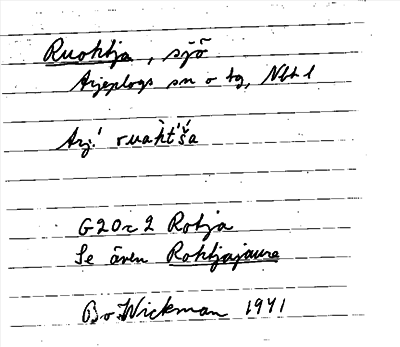 Ruohtja, sjö
Arjeplogs sn o tg, Nbt l
Arj! ruaht'ša
G20r 2 Rotja
Se även Rohtjajaure
Bo Wickman 1941